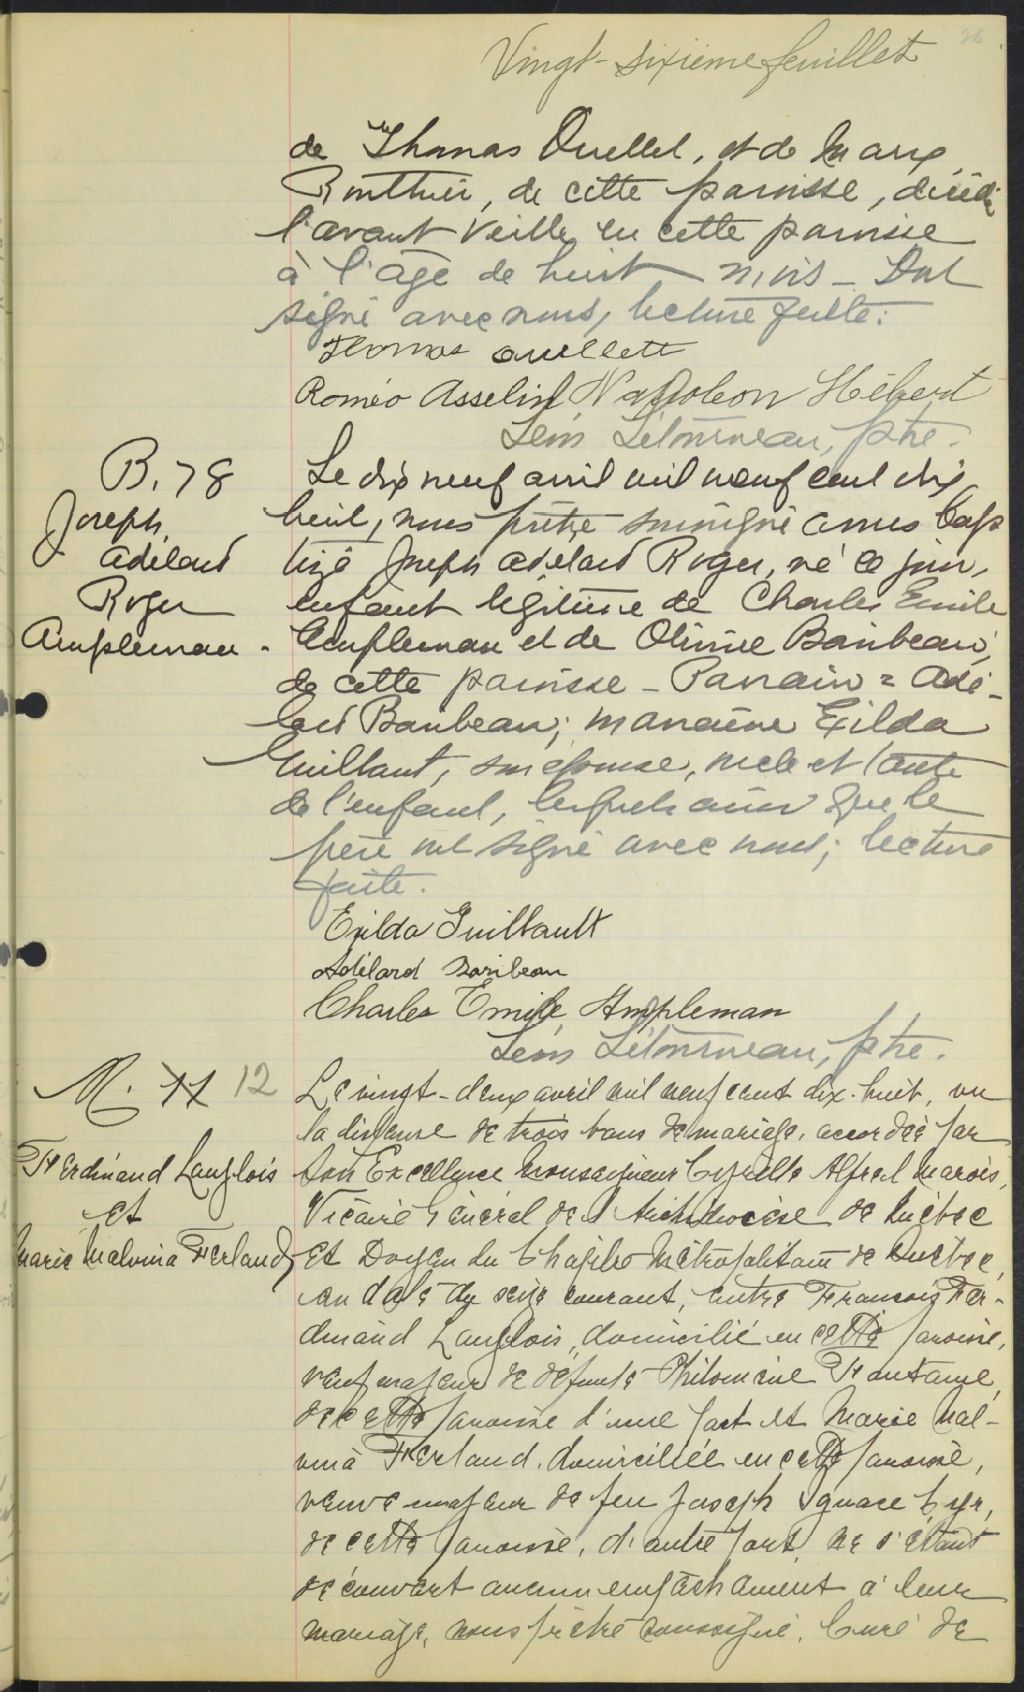 26
Vingt-sixième feuillet
de Thomas Ouellet, et de Marie
Routhier, de cette paroisse, décédé
l'avant veille en cette paroisse
à l'âge de huit mois – Ont
signé avec nous, lecture faite.
Thomas Ouellett
Roméo Asselin Napoléon Hébert
Léon Létourneau, ptre.
B. 78
Joseph
Adélard
Roger
Ampleman.
Le dix neuf avril mil neuf cent dix
huit, nous prêtre soussigné avons bap
tisé Joseph Adélard Roger, né ce jour,
enfant légitime de Charles Emile
Ampleman et de Olivine Baribeau,
de cette paroisse – Parrain = Adé-
lard Baribeau; marraine Exilda
Guilbault, son épouse, oncle et tante
de l'enfant, lesquels ainsi que le
père ont signé avec nous; lecture
faite.
Exilda Guilbault
Adélard Baribeau
Charles Emile Ampleman
Léon Létourneau, ptre.
M. 11 12
Ferdinand Langlois
et
Marie Malvina Ferland
Le vingt-deux avril mil neuf cent dix-huit, vu
la dispense de trois bans de mariage, accordée par
Son Excellence Monseigneur Cyrille Alfred Marois,
Vicaire Général de l'Archidiocèse de Québec
et Doyen du Chapitre Métropolitain de Québec,
en date du seize courant, entre François Fer-
dinand Langlois, domicilié en cette paroisse,
veuf majeur de défunte Philomène Fontaine,
de cette paroisse d'une part et Marie Mal-
vina Ferland, domiciliée en cette paroisse,
veuve majeur de feu Joseph Ignace Cyr,
de cette paroisse, d'autre part, ne s'étant
découvert aucun empêchement à leur
mariage, nous prêtre soussigné, Curé de